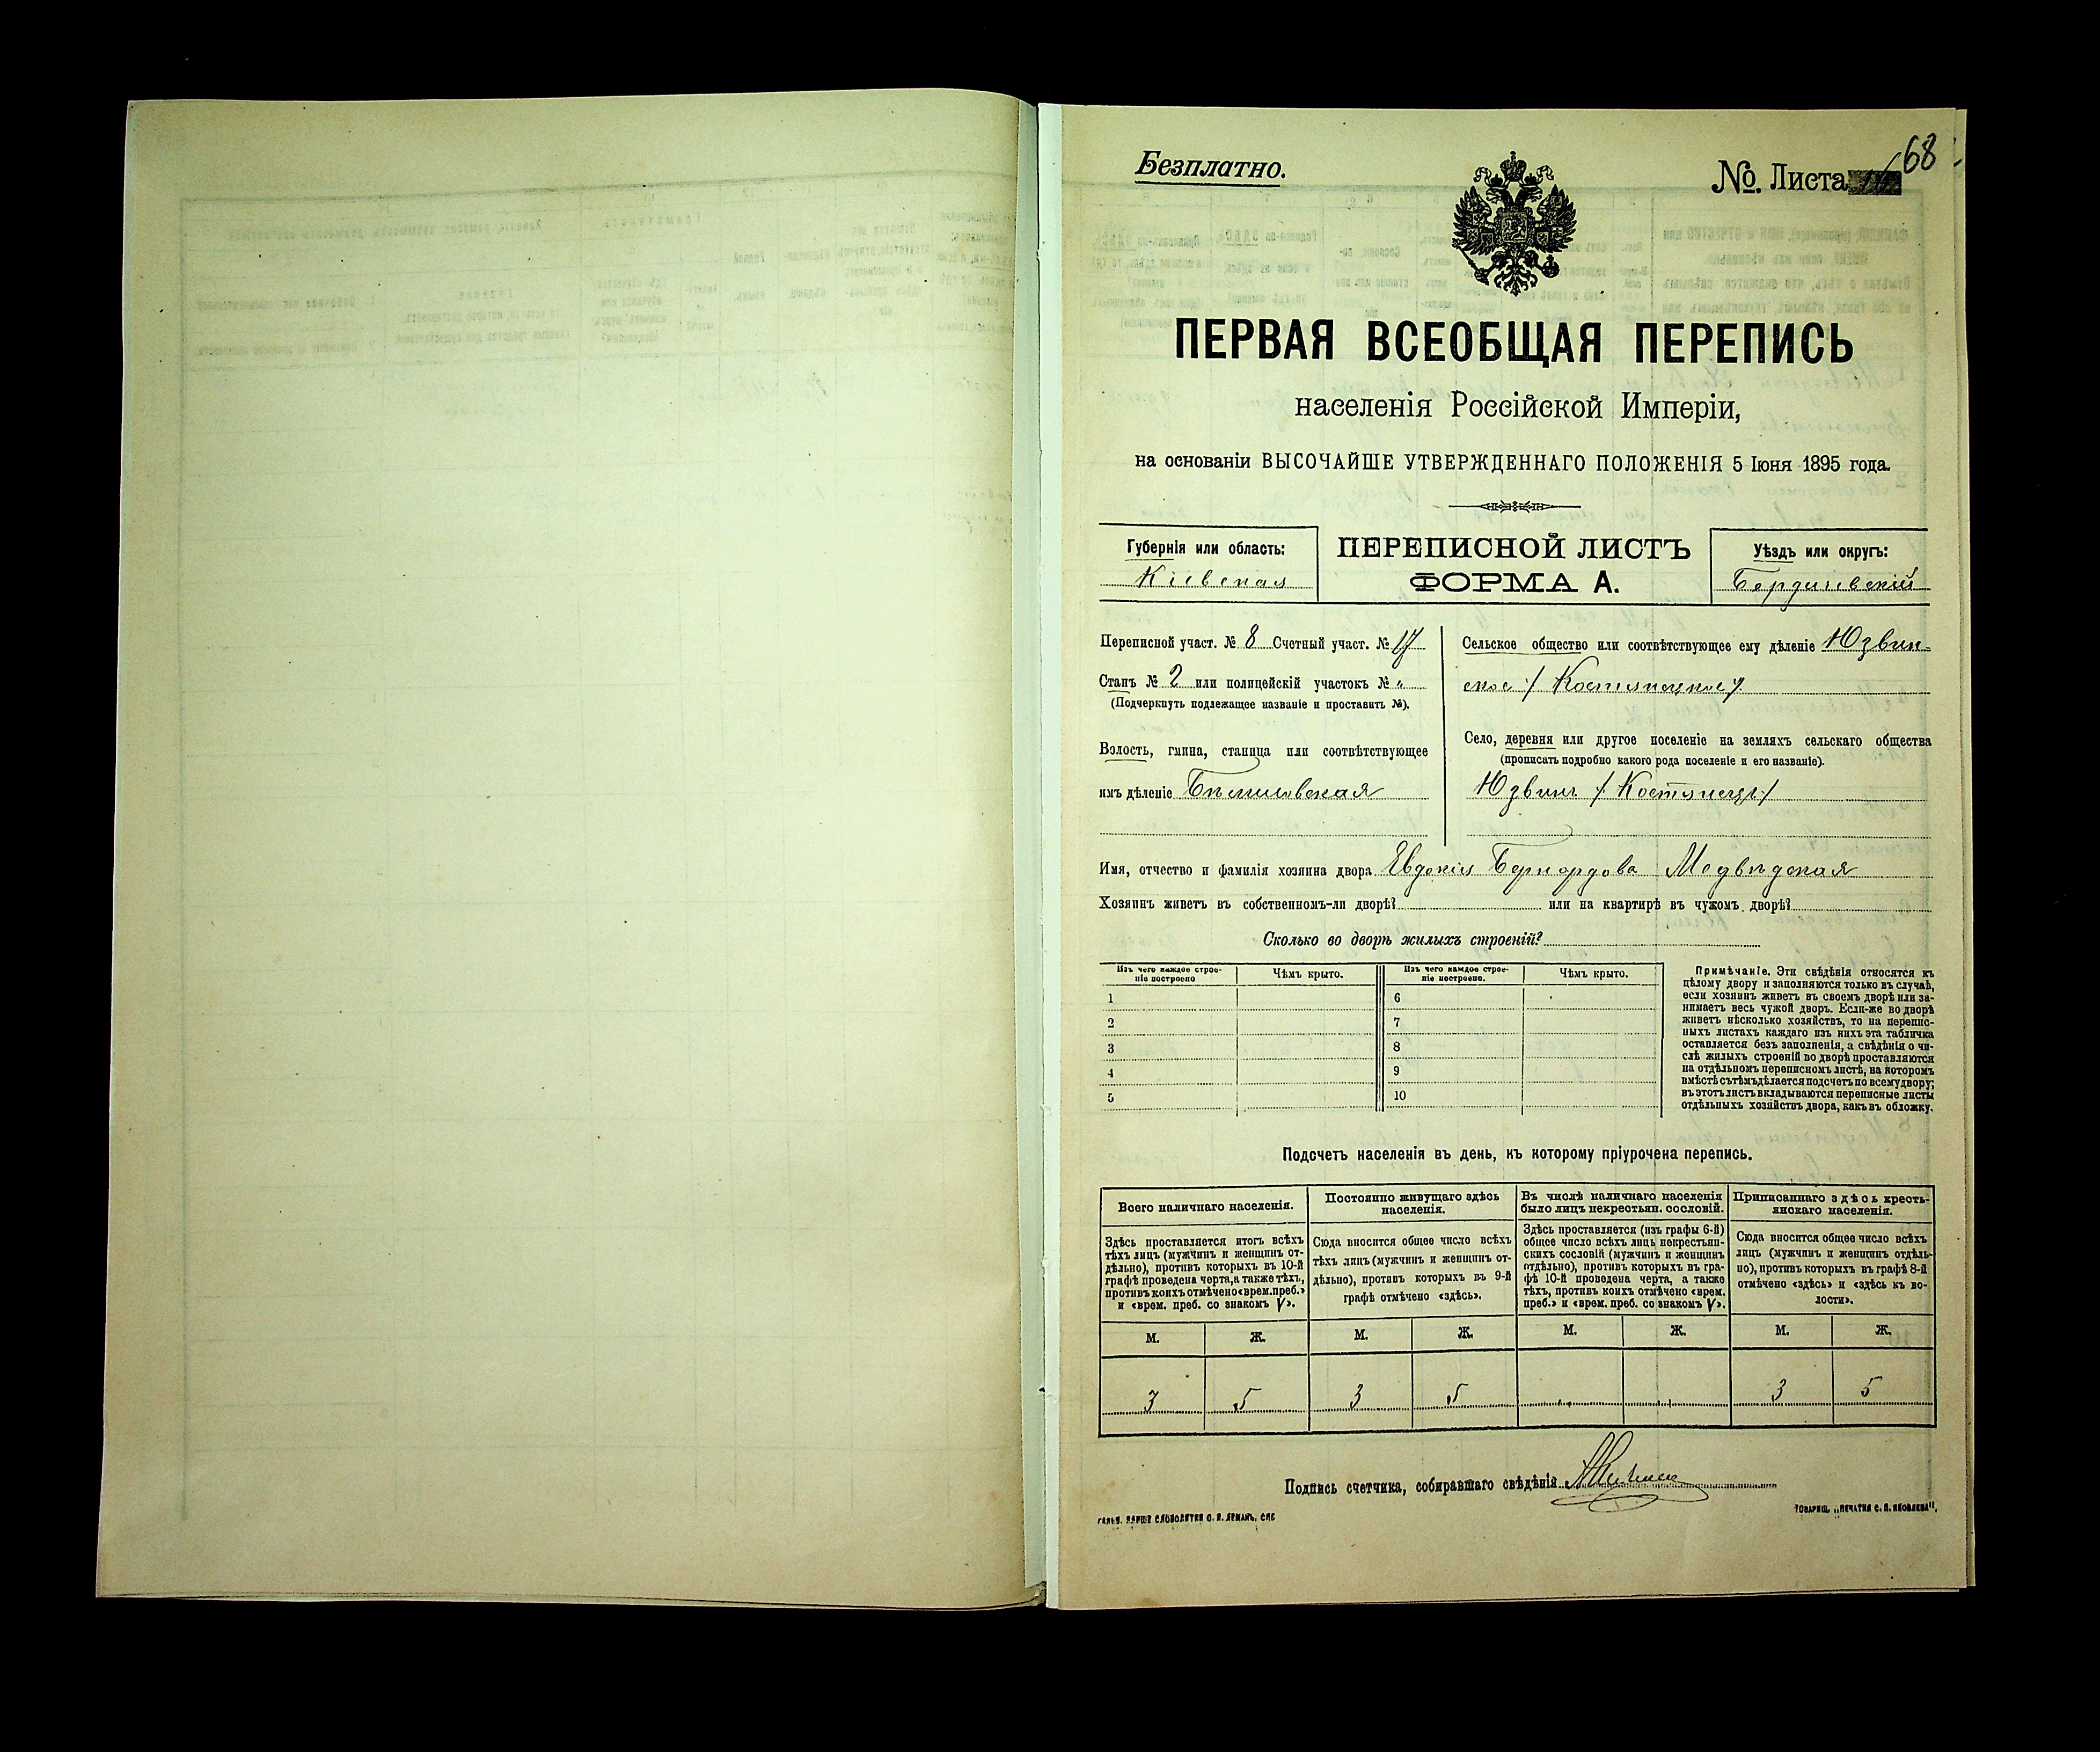 Безплатно.
№ Листа 68
ПЕРВАЯ ВСЕОБЩАЯ ПЕРЕПИСЬ
населенія Россійской Имперіи,
на основаніи ВЫСОЧАЙШЕ УТВЕРЖДЕННАГО ПОЛОЖЕНІЯ 5 Іюня 1895 года.
Губернія или область:
Кіевская
ПЕРЕПИСНОЙ ЛИСТЪ
ФОРМА А.
Уѣздъ или округъ:
Бердичевскій
Переписной участ. № 8 Счетный участ. № 17
Станъ № 2 или полицейскій участокъ № „
(Подчеркнуть подлежащее названіе и проставить №).
Волость, гмина, станица или соотвѣтствующее
имъ дѣленіе Бѣлиловская
Сельское общество или соотвѣтствующее ему дѣленіе Юзвин-
ское
Село, деревня или другое поселеніе на земляхъ сельскаго общества
(прописать подробно какого рода поселеніе и его названіе).
Юзвин
Имя, отчество и фамилія хозяина двора Евдокія Бернардова Медвѣдская
Хозяинъ живетъ въ собственномъ-ли дворѣ? или на квартирѣ въ чужом. дворѣ?
Сколько во дворѣ жилыхъ строеній?
Изъ чего каждое строе-
ніе построено
Чѣмъ крыто.
Изъ чего каждое строе-
ніе построено.
Чѣмъ крыто.
1 6
2 7
3 8
4 9
5 10
Примѣчаніе. Эти свѣдѣнія относятся къ
цѣлому двору и заполняются только въ случаѣ,
если хозяинъ живетъ въ своемъ дворѣ или за-
нимаетъ весь чужой дворъ. Если-же во дворѣ
живетъ нѣсколько хозяйствъ, то на перепис-
ныхъ листахъ каждаго изъ нихъ эта табличка
оставляется безъ заполненія, а свѣдѣнія о чи-
слѣ жилыхъ строеній во дворѣ проставляются
на отдѣльномъ переписномъ листѣ, на которомъ
вмѣстѣ съ тѣмъ дѣлается подсчетъ по всему двору;
въ этотъ листъ вкладываются переписные листы
отдѣльныхъ хозяйствъ двора, какъ въ обложку.
Подсчетъ населенія въ день, къ которому пріурочена перепись.
Всего наличнаго населенія.
Здѣсь проставляется итогъ всѣхъ
тѣхъ лицъ (мужчинъ и женщинъ от-
дѣльно), противъ которыхъ въ 10-й
графѣ проведена черта, а также тѣхъ,
противъ коихъ отмѣчено «врем. преб.»
и «врем. преб. со знакомъ V».
Постоянно живущаго здѣсь
населенія.
Сюда вносится общее число всѣхъ
тѣхъ лицъ (мужчинъ и женщинъ от-
дѣльно), противъ которыхъ въ 9-й
графѣ отмѣчено «здѣсь».
Въ числѣ наличнаго населенія
было лицъ некрестьян. сословій.
Здѣсь проставляется (изъ графы 6-й)
общее число всѣхъ лицъ некрестьян-
скихъ сословій (мужчинъ и женщинъ
отдѣльно), противъ которыхъ въ гра-
фѣ 10-й проведена черта, а также
тѣхъ, противъ коихъ отмѣчено «врем.
преб.» и «врем. преб. со знакомъ V».
Приписаннаго здѣсь кресть-
янскаго населенія.
Сюда вносится общее число всѣхъ
лицъ (мужчинъ и женщинъ отдѣль-
но), противъ которыхъ въ графѣ 8-й
отмѣчено «здѣсь» и «здѣсь къ во-
лости».
М. Ж. М. Ж. М. Ж. М. Ж.
3 5 3 5 3 5
Подпись счетчика, собиравшаго свѣдѣнія
ТОВАРИЩ. „ПЕЧАТНЯ С. П. ЯКОВЛЕВА".